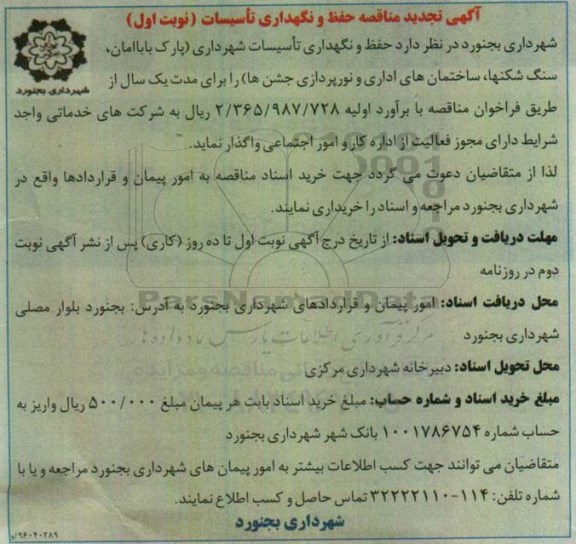 آگهی تجدید مناقصه حفظ و نگهداری تأسیسات (نوبت اول)
شهرداری بجنورد در نظر دارد حفظ و نگهداری تأسیسات شهرداری (پارک باباامان،
سنگ شکنها، ساختمان های اداری و نورپردازی جشن ها) را برای مدت یک سال از
شهرداری بجنورد
طریق فراخوان مناقصه با برآورد اولیه ۲/۳۶۵/۹۸۷/۷۲۸ ریال به شرکت های خدماتی واجد
شرایط دارای مجوز فعالیت از اداره کار و امور اجتماعی واگذار نماید.
لذا از متقاضیان دعوت می گردد جهت خرید اسناد مناقصه به امور پیمان و قراردادها واقع در
شهرداری بجنورد مراجعه و اسناد را خریداری نمایند.
مهلت دریافت و تحویل اسناد: از تاریخ درج آگهی نوبت اول تا ده روز (کاری) پس از نشر آگهی نوبت
دوم در روزنامه
محل دریافت اسناد: امور پیمان و قراردادهای شهرداری بجنورد به آدرس: بجنورد بلوار مصلی
شهرداری بجنورد
محل تحویل اسناد: دبیرخانه شهرداری مرکزی
مبلغ خرید اسناد و شماره حساب: مبلغ خرید اسناد بابت هر پیمان مبلغ ۵۰۰/۰۰۰ ریال واریز به
حساب شماره ۱۰۰۱۷۸۶۷۵۴ بانک شهر شهرداری بجنورد
متقاضیان می توانند جهت کسب اطلاعات بیشتر به امور پیمان های شهرداری بجنورد مراجعه و یا با
شماره تلفن: ۱۱۴-۳۲۲۲۲۱۱۰ تماس حاصل و کسب اطلاع نمایند.
شهرداری بجنورد
۹۶۰۴۰۲۸۹/و
ParsNamadData